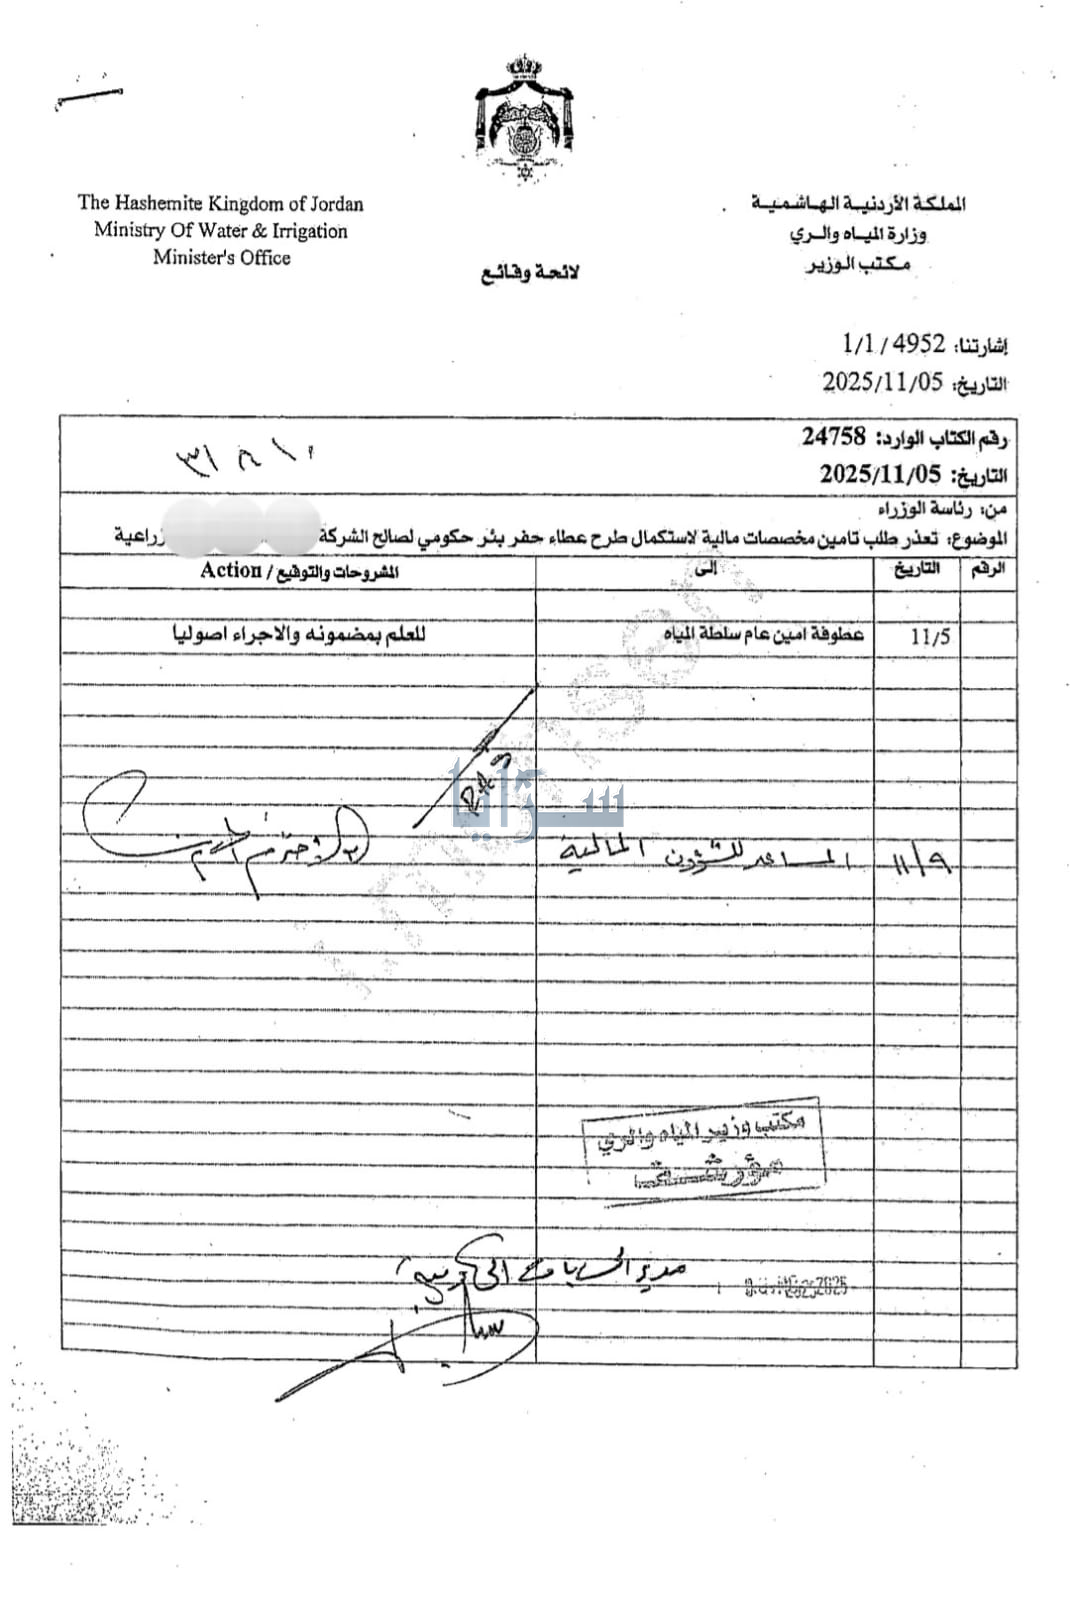 المملكة الأردنية الهاشمية
وزارة المياه والري
مكتب الوزير
The Hashemite Kingdom of Jordan
Ministry Of Water & Irrigation
Minister's Office
لائحة وقائع
إشارتنا: 4952 /1/1
التاريخ: 2025/11/05
رقم الكتاب الوارد: 24758
التاريخ: 2025/11/05
من: رئاسة الوزراء
الموضوع: تعذر طلب تامين مخصصات مالية لاستكمال طرح عطاء حفر بئر حكومي لصالح الشركة زراعية
الرقم التاريخ إلى المشروحات والتوقيع / Action
11/5 عطوفة امين عام سلطة المياه للعلم بمضمونه والاجراء اصوليا
سرايا
١١/٩ المساعد للشؤون المالية
مكتب وزير المياه والري
مؤرشف
مدير
2025